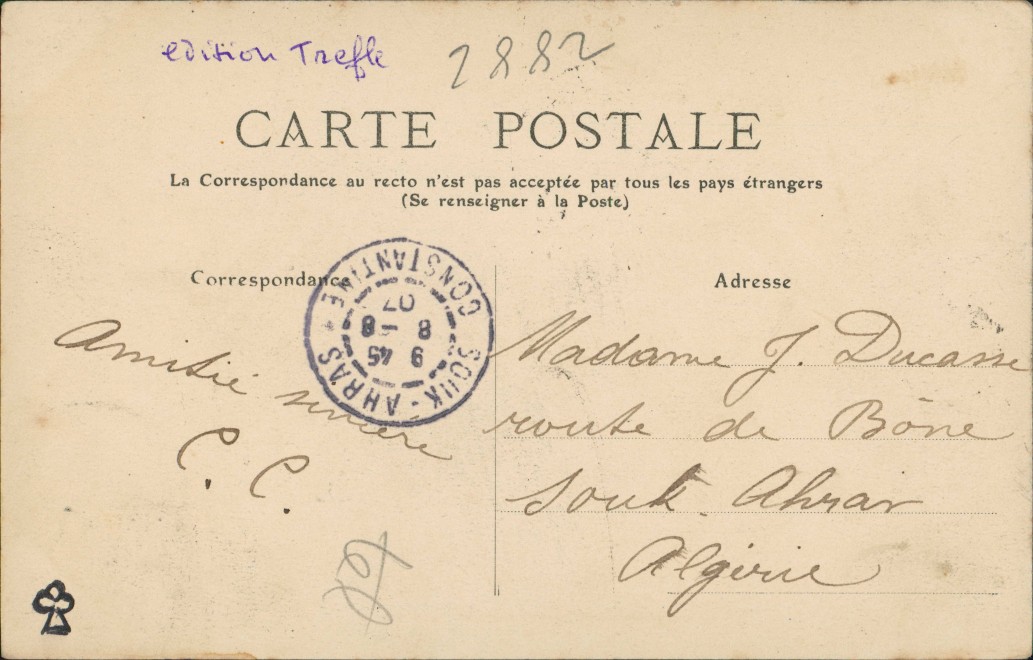 edition Trefle
2882
CARTE POSTALE
La Correspondance au recto n'est pas acceptée par tous les pays étrangers
(Se renseigner à la Poste)
Correspondance
Adresse
SOUK-AHRAS
CONSTANTINE
9 45
8 - 8
07
Amitié sincère
C. C.
Madame J. Ducasse
route de Bône
Souk. Ahras
Algérie